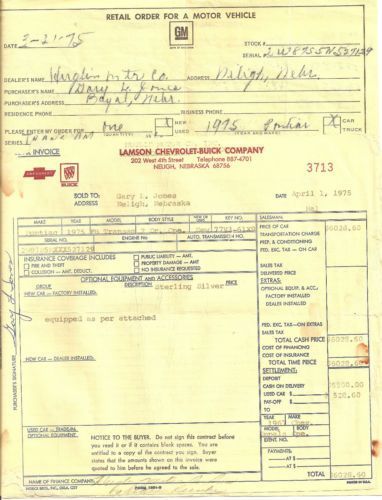 RETAIL ORDER FOR A MOTOR VEHICLE
GM
DATE 2-21-75
STOCK #
SERIAL
DEALER'S NAME Mtr Co. ADDRESS Neligh, Nebr.
PURCHASER'S NAME Gary L. Jones
PURCHASER'S ADDRESS Royal, Nebr.
RESIDENCE PHONE BUSINESS PHONE
PLEASE ENTER MY ORDER FOR one (QUANTITY) NEW USED 1975 Pontiac (YEAR AND MAKE) X CAR TRUCK
SERIES
INVOICE
LAMSON CHEVROLET-BUICK COMPANY
202 West 4th Street Telephone 887-4701
NELIGH, NEBRASKA 68756
3713
CHEVROLET
BUICK
SOLD TO: Gary L. Jones DATE April 1, 1975
ADDRESS Neligh, Nebraska
MAKE YEAR MODEL BODY STYLE NEW OR USED KEY NO. SALESMAN:
Pontiac 1975 Transam 2 Dr. Cpe. New
SERIAL NO. ENGINE No AUTO. TRANSMISSION NO.
PRICE OF CAR $6028.60
TRANSPORTATION CHARGE
PREP. & CONDITIONING
FED. EXC. TAX—ON CAR
INSURANCE COVERAGE INCLUDES
FIRE AND THEFT
COLLISION — AMT. DEDUCT.
PUBLIC LIABILITY — AMT.
PROPERTY DAMAGE — AMT
NO INSURANCE REQUESTED
SALES TAX
DELIVERED PRICE
OPTIONAL EQUIPMENT AND ACCESSORIES
GROUP DESCRIPTION PRICE
NEW CAR — FACTORY INSTALLED: Sterling Silver
EXTRAS
OPTIONAL EQUIP. & ACC.
FACTORY INSTALLED
DEALER INSTALLED
equipped as per attached
FED. EXC. TAX—ON EXTRAS
SALES TAX
TOTAL CASH PRICE $6028.60
COST OF FINANCING
COST OF INSURANCE
TOTAL TIME PRICE $6028.60
NEW CAR — DEALER INSTALLED:
SETTLEMENT:
DEPOSIT
CASH ON DELIVERY $5500.00
USED CAR 528.60
PAY-OFF
TO
YEAR MAKE
1967 Chev.
MODEL BODY
IDENT. NO.
PURCHASER'S SIGNATURE Gary L Jones
USED CAR — TRADE-IN
OPTIONAL EQUIPMENT AND CONDITION
NOTICE TO THE BUYER. Do not sign this contract before
you read it or if it contains blank spaces. You are
entitled to a copy of the contract you sign. Buyer
states that the amounts shown on this invoice
were quoted to him before he agreed to the sale.
PAYMENTS:
AT $
AT $
TOTAL $6028.60
NAME OF FINANCE COMPANY
FORM 1001-B